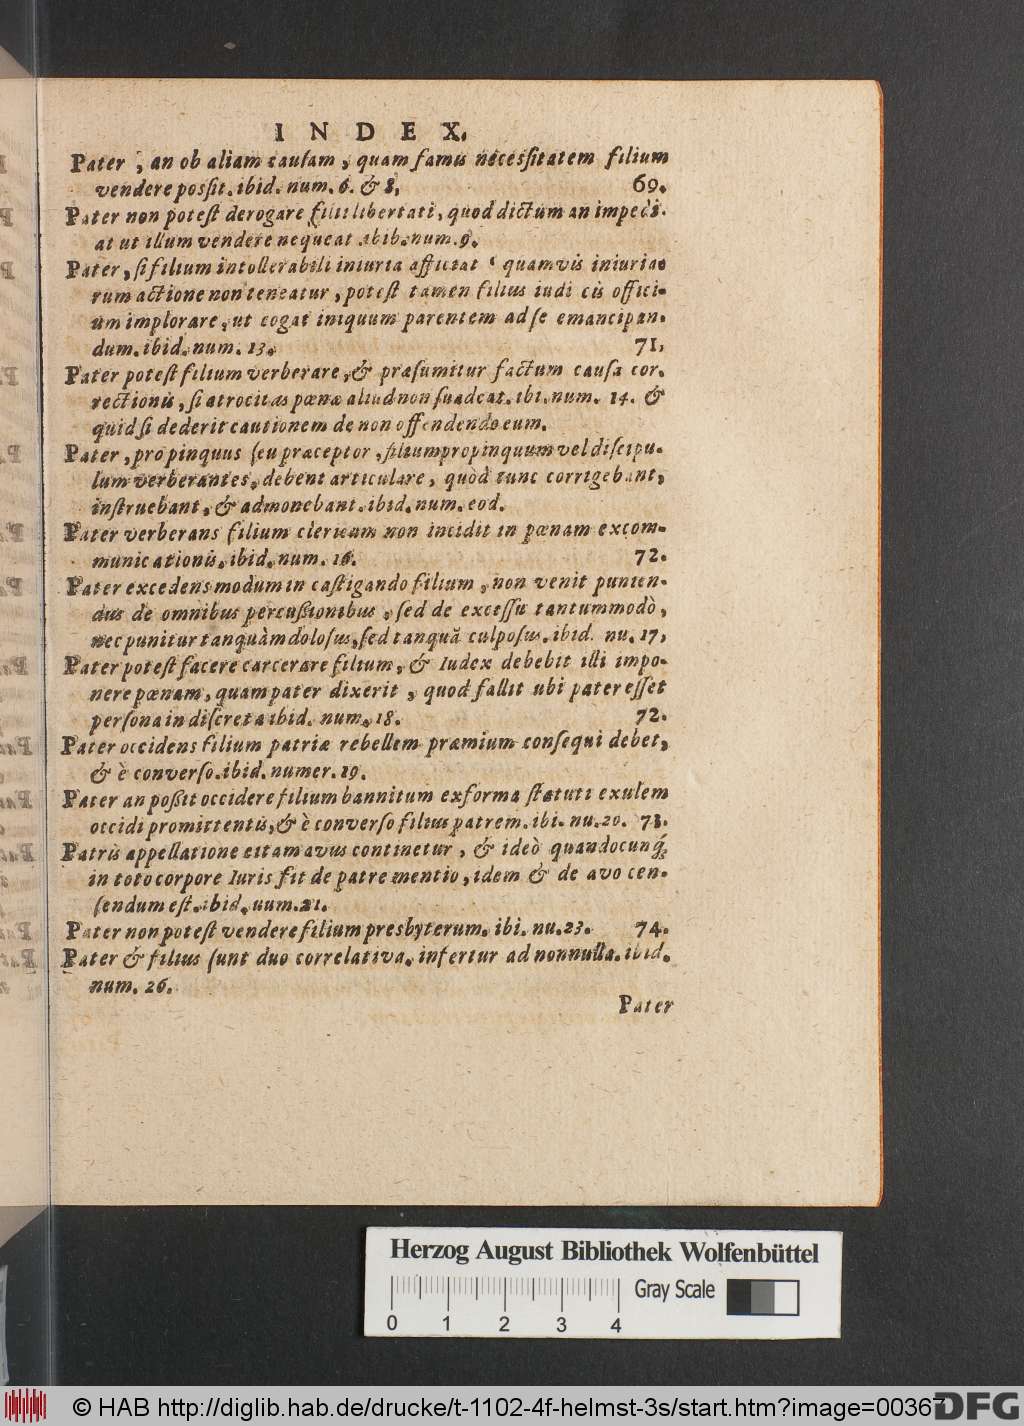 INDEX.
Pater, an ob aliam causam, quam famis necessitatem filium
vendere possit. ibid. num. 6. & 8, 69.
Pater non potest derogare filii libertati, quod dictum an impedi.
at ut illum vendere nequeat ibib. num. 9.
Pater, si filium intollerabili iniuria afficiat quamvis iniuria-
rum actione non teneatur, potest tamen filius iudi cis offici-
um implorare, ut cogat iniquum parentem ad se emancipan-
dum. ibid. num. 13. 71,
Pater potest filium verberare, & præsumitur factum causa cor-
rectionis, si atrocitas pœnæ aliud non suadeat. ibi. num. 14. &
quid si dederit cautionem de non offendendo eum.
Pater, propinquus seu præceptor, filium propinquum vel discipu-
lum verberantes, debent articulare, quòd tunc corrigebant,
instruebant, & admonebant. ibid. num. eod.
Pater verberans filium clericum non incidit in pœnam excom-
municationis. ibid. num. 16. 72.
Pater excedens modum in castigando filium, non venit punien-
dus de omnibus percußionibus, sed de excessu tantummodò,
nec punitur tanquàm dolosus, sed tanquã culposus. ibid. nu. 17,
Pater potest facere carcerare filium, & Iudex debebit illi impo-
nere pœnam, quam pater dixerit, quod fallit ubi pater esset
persona indiscreta ibid. num. 18. 72.
Pater occidens filium patriæ rebellem præmium consequi debet,
& è converso. ibid. numer. 19.
Pater an poßit occidere filium bannitum ex forma statuti exulem
occidi promittentis, & è converso filius patrem. ibi. nu. 20. 73.
Patris appellatione etiam avus continetur, & ideò quandocunq́;
in toto corpore Iuris fit de patre mentio, idem & de avo cen-
sendum est. ibid. uum. 21.
Pater non potest vendere filium presbyterum. ibi. nu. 23. 74.
Pater & filius sunt duo correlativa. infertur ad nonnulla. ibid.
num. 26.
Pater
Herzog August Bibliothek Wolfenbüttel
Gray Scale
0 1 2 3 4
© HAB http://diglib.hab.de/drucke/t-1102-4f-helmst-3s/start.htm?image=00367
DFG